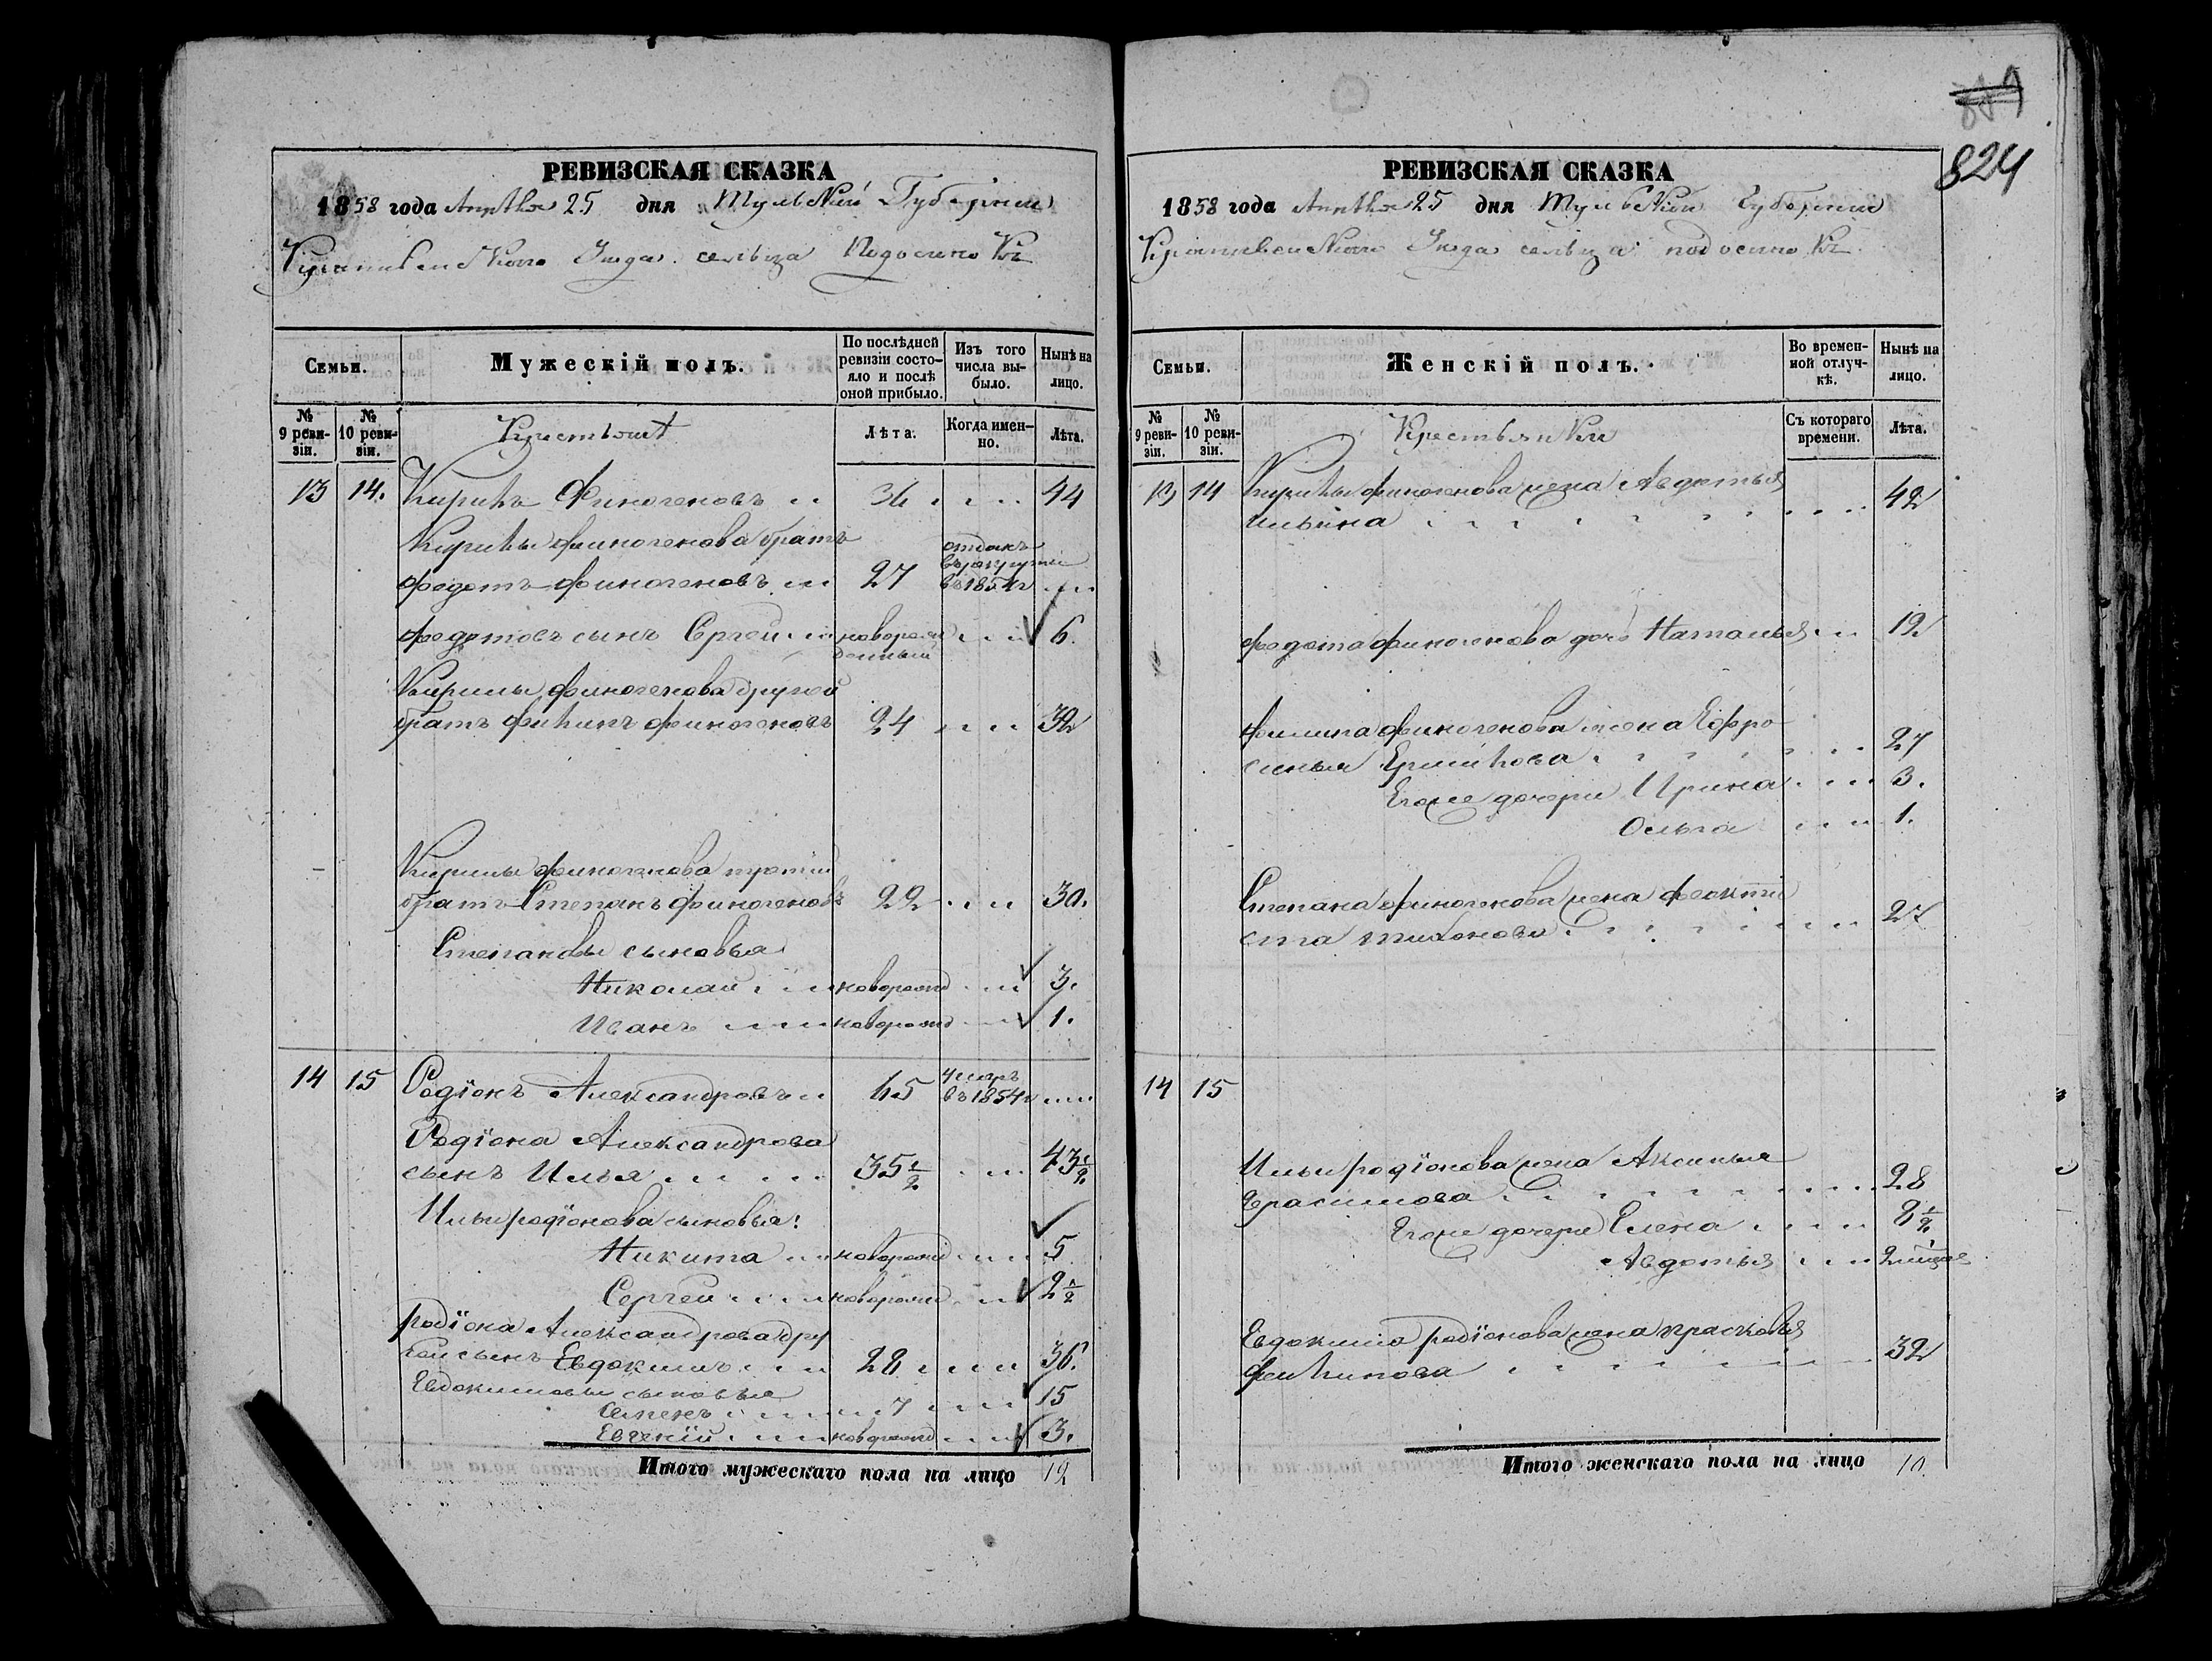 824
РЕВИЗСКАЯ СКАЗКА
1858 года Апрѣля 25 дня Тульской Губерніи
Крапивенскаго Уезда сельца Подосинокъ
Семьи.
Мужескій полъ.
По послѣдней ревизіи состояло и послѣ оной прибыло.
Изъ того числа выбыло.
Нынѣ на лицо.
№ 9 ревизіи.
№ 10 ревизіи.
Крестьяне
Лѣта.
Когда именно.
Лѣта.
13 14. Кирилъ Финогеновъ 36 44
Кирилы финогенова братъ
федотъ финогеновъ 27 отданъ в рекруты въ 1854 г
федотовъ сынъ Сергей новорожденный 6.
Кирилы финогенова другой
братъ филипъ финогеновъ 24 32
Кирилы финогенова третій
братъ Степанъ финогеновъ 22 30.
Степановы сыновья
Николай новорожд 3.
Иванъ новорожд 1.
14 15 Родіонъ Александровъ 65 умеръ въ 1854 г
Родіона Александрова
сынъ Илья 35 1/2 43 1/2
Ильи родіонова сыновья:
Никита новорожд 5
Сергей новорожд 2 1/2
родіона Александрова дру
гой сынъ Евдокимъ 28 36.
Евдокимовы сыновья
Семенъ 7 15
Евгеній новорожд 3.
Итого мужескаго пола на лицо 12
РЕВИЗСКАЯ СКАЗКА
1858 года Апрѣля 25 дня Тульской Губерніи
Крапивенскаго Уезда сельца подосинокъ
Семьи.
Женскій полъ.
Во временной отлучкѣ.
Нынѣ на лицо.
№ 9 ревизіи.
№ 10 ревизіи.
Крестьянки
Съ котораго времени.
Лѣта.
13 14 Кирилы финогенова жена Авдотья
ильина 42
федота финогенова дочь Наталья 12
филипа финогенова жена Ефро
синья Ермилова 27
Егоже дочери Ирина 3.
Ольга 1.
Степана финогенова жена феокти
ста тихонова 27
14 15
Ильи родіонова жена Аксинья
Герасимова 28
Егоже дочери Елена 8 1/2
Авдотья 2 мѣсяца
Евдокима родіонова жена прасковья
филипова 32
Итого женскаго пола на лицо 10.